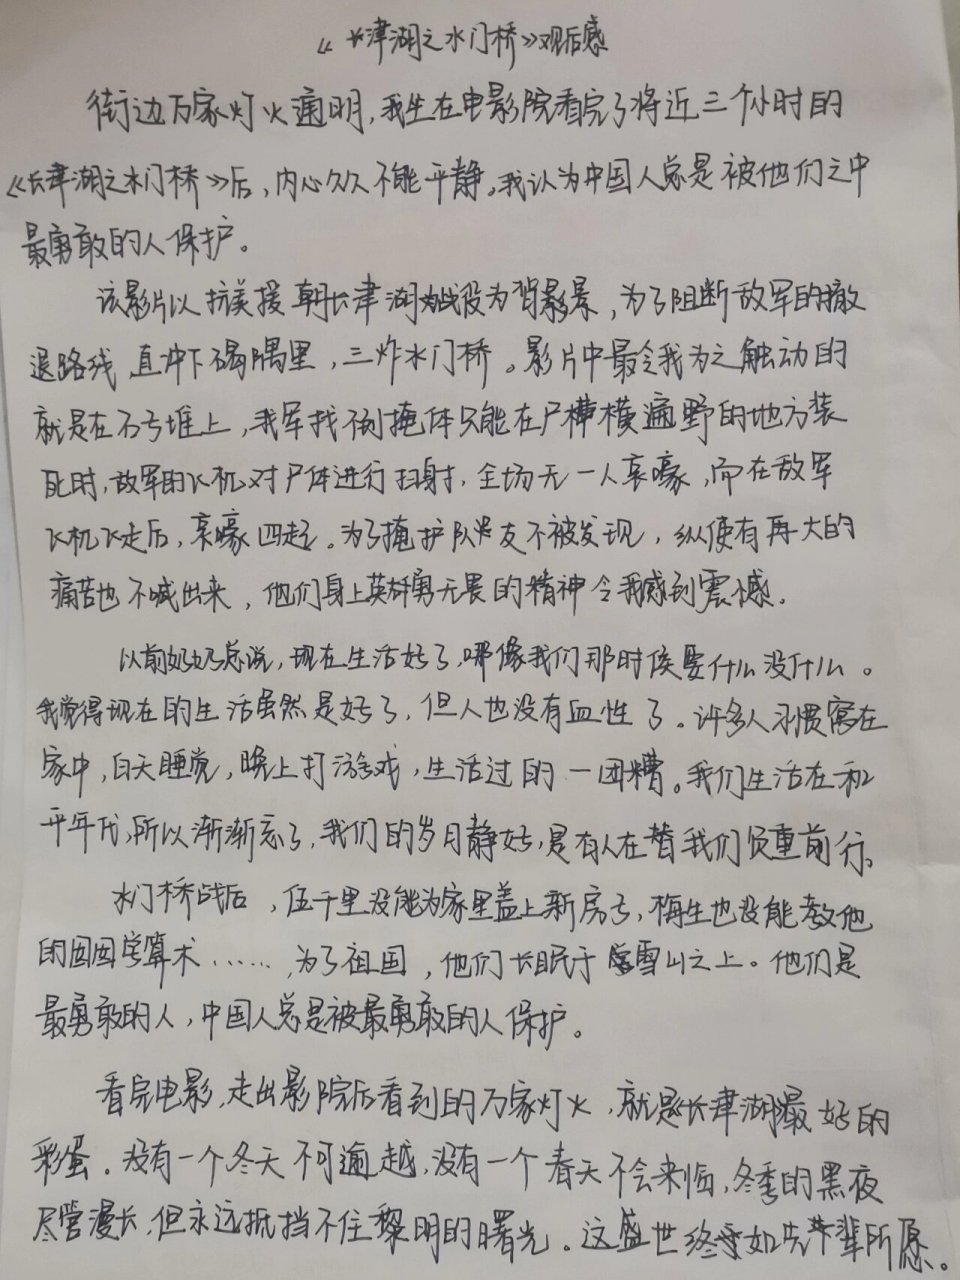 《长津湖之水门桥》观后感
街边万家灯火通明,我坐在电影院看完了将近三个小时的
《长津湖之水门桥》后,内心久久不能平静。我认为中国人总是被他们之中
最勇敢的人保护。
该影片以抗美援朝长津湖战役为背景,为了阻断敌军的撤
退路线,直冲下碣隅里,三炸水门桥。影片中最令我为之触动的
就是在石子堆上,我军找不到掩体只能在尸横遍野的地方装
死时,敌军的飞机对尸体进行扫射,全场无一人哀嚎,而在敌军
飞机飞走后,哀嚎四起。为了掩护队友不被发现,纵使有再大的
痛苦也不喊出来,他们身上英勇无畏的精神令我感到震憾。
以前奶奶总说,现在生活好了,哪像我们那时候要什么没什么。
我觉得现在的生活虽然是好了,但人也没有血性了。许多人习惯窝在
家中,白天睡觉,晚上打游戏,生活过的一团糟。我们生活在和
平年代,所以渐渐忘了,我们的岁月静好,是有人在替我们负重前行。
水门桥战后,伍千里没能为家里盖上新房子,梅生也没能教他
的囡囡学算术……,为了祖国,他们长眠于雪山之上。他们是
最勇敢的人,中国人总是被最勇敢的人保护。
看完电影,走出影院后看到的万家灯火,就是长津湖最好的
彩蛋。没有一个冬天不可逾越,没有一个春天不会来临,冬季的黑夜
尽管漫长,但永远抵挡不住黎明的曙光。这盛世终如先辈所愿。